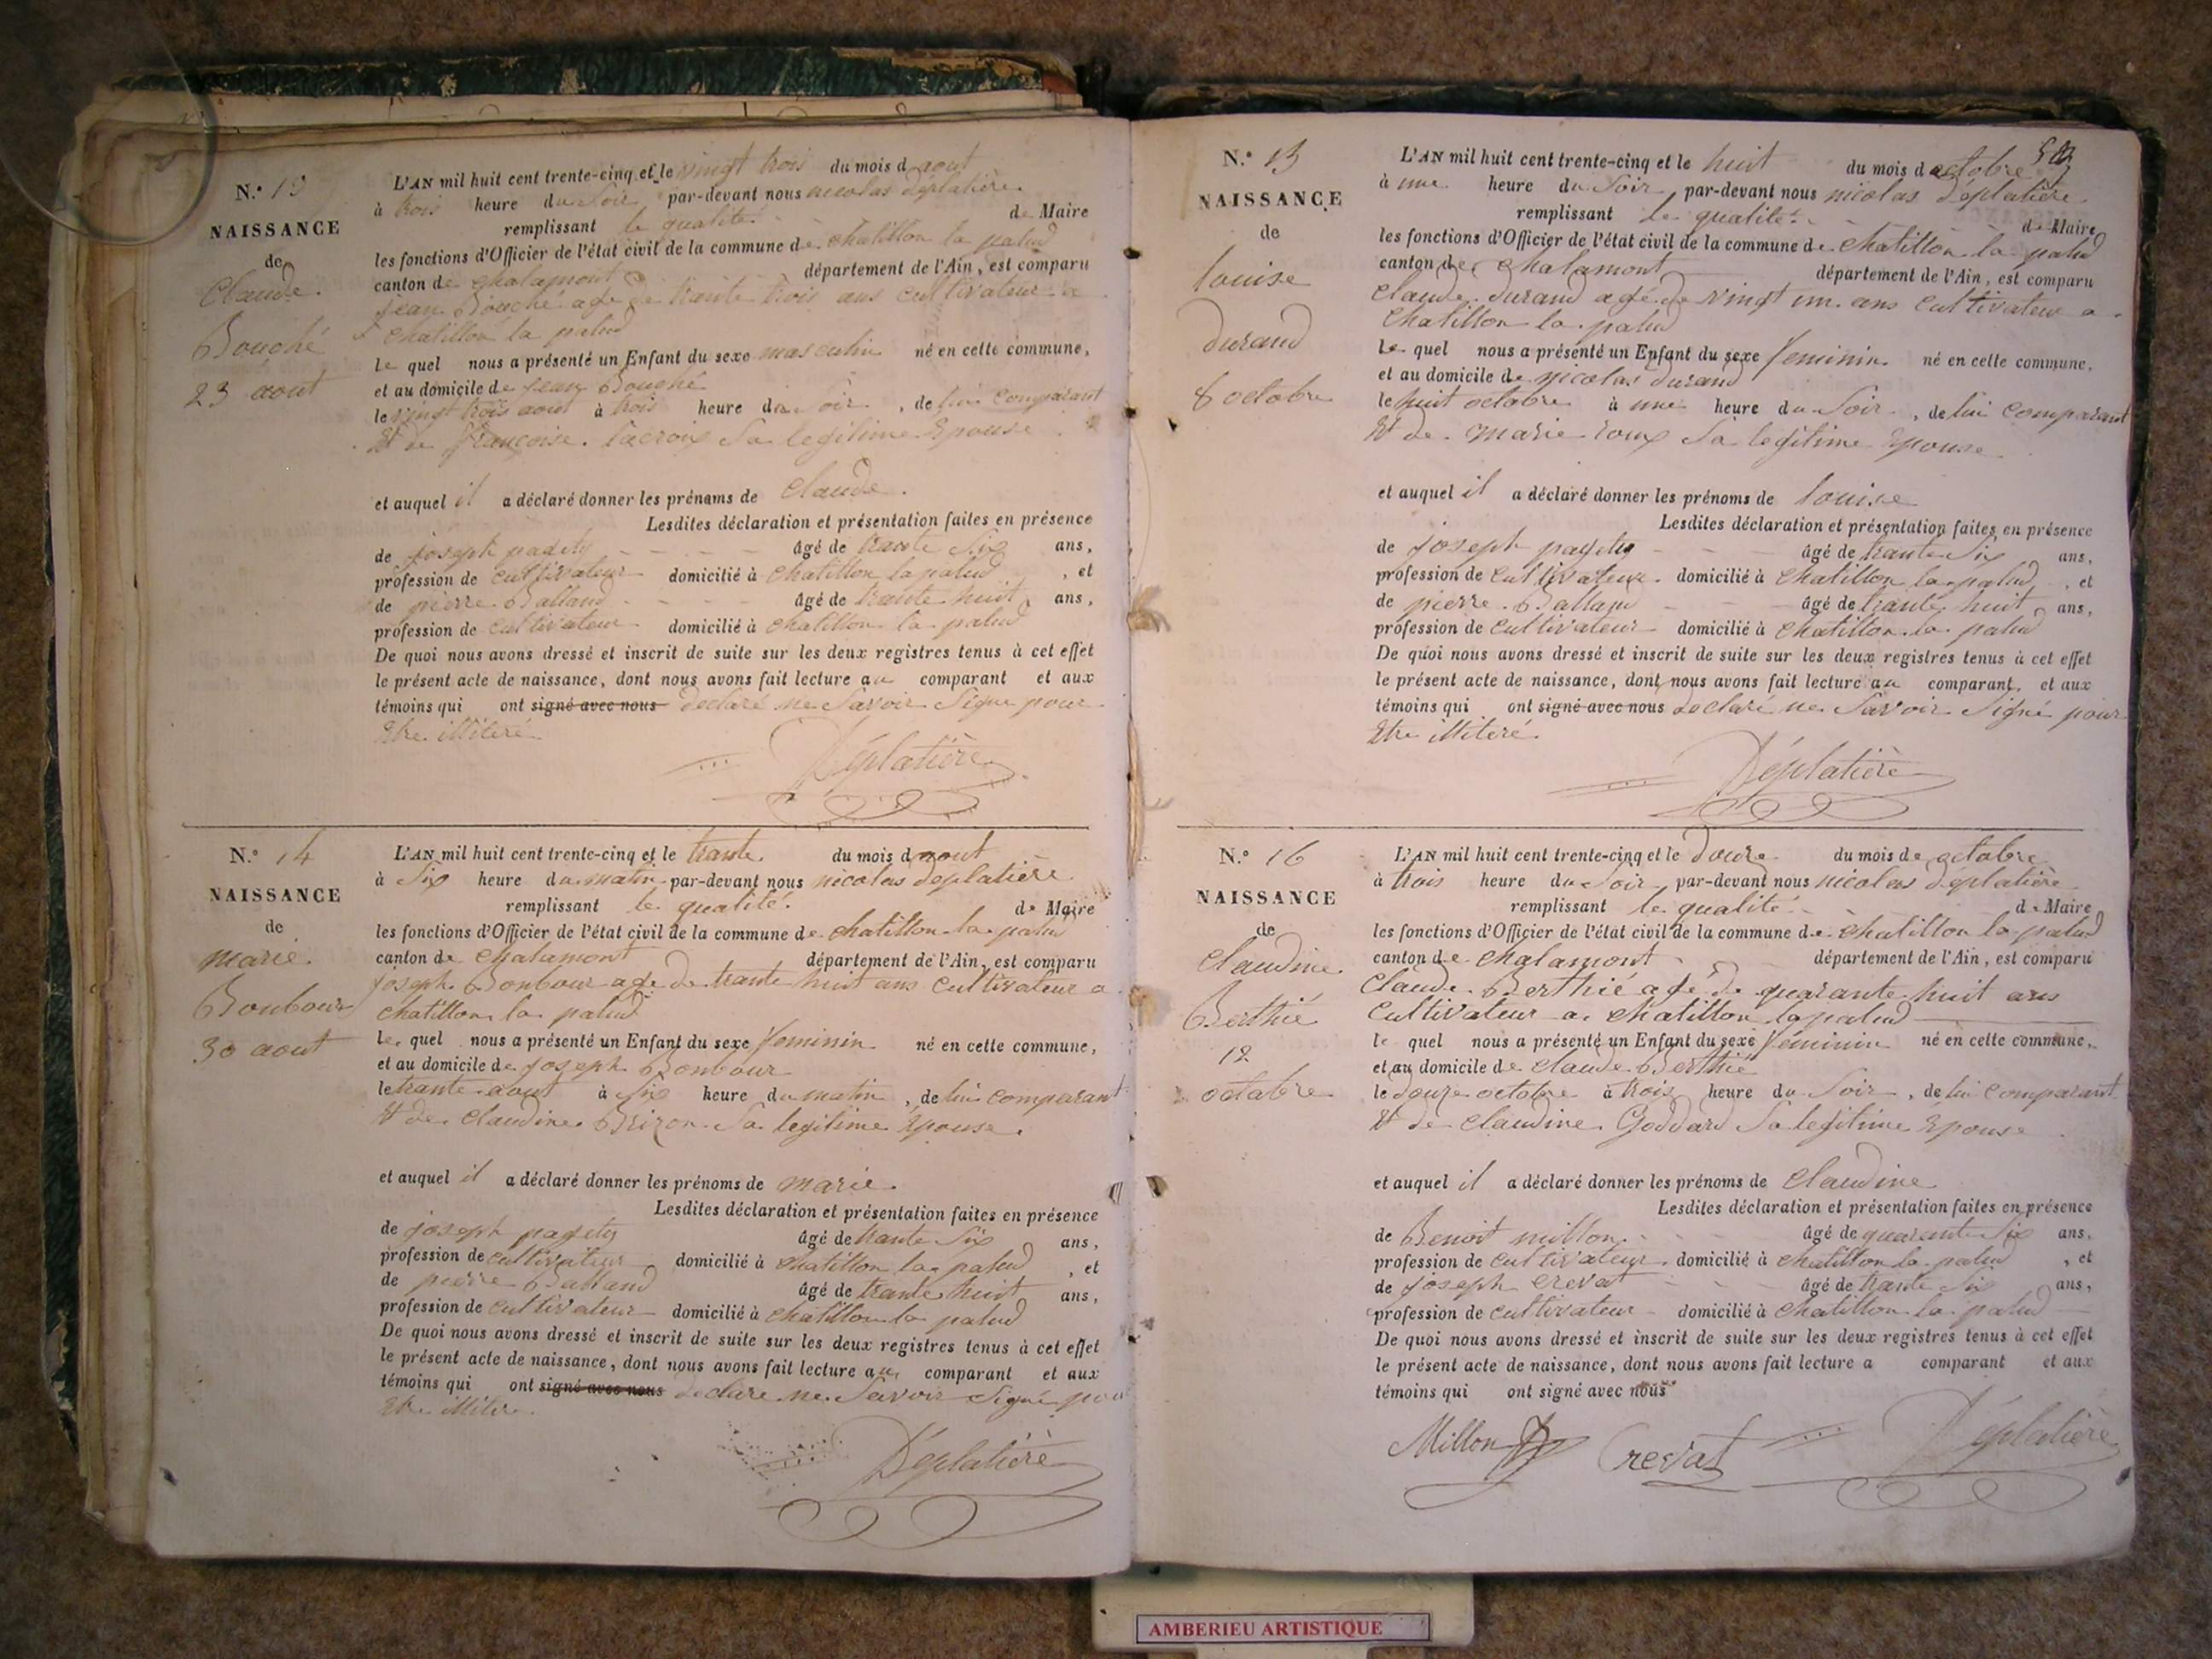 N.° 13
NAISSANCE
de
Claude
Bouché
23 aout
L'AN mil huit cent trente-cinq et le vingt trois du mois d aout
à trois heure du Soir par-devant nous nicolas Déplatière
remplissant le qualité de Maire
les fonctions d'Officier de l'état civil de la commune de chatillon la palud
canton de chalamont département de l'Ain, est comparu
jean Bouché age de trante trois ans cultivateur a
chatillon la palud
le quel nous a présenté un Enfant du sexe masculin né en cette commune,
et au domicile de jean Bouché
le vingt trois aout à trois heure du Soir, de lui comparant
Et de françoise lacroix Sa legitime Epouse
et auquel il a déclaré donner les prénoms de Claude
Lesdites déclaration et présentation faites en présence
de joseph âgé de trante Six ans,
profession de cultivateur domicilié à chatillon la palud, et
de pierre Balland âgé de trante huit ans,
profession de cultivateur domicilié à chatillon la palud
De quoi nous avons dressé et inscrit de suite sur les deux registres tenus à cet effet
le présent acte de naissance, dont nous avons fait lecture au comparant et aux
témoins qui ont signé avec nous declaré ne Savoir Signe pour
Etre illiteré
Déplatière
N.° 14
NAISSANCE
de
marie
Bonbour
30 aout
L'AN mil huit cent trente-cinq et le trante du mois d aout
à Six heure du matin par-devant nous nicolas Déplatière
remplissant le qualité de Maire
les fonctions d'Officier de l'état civil de la commune de chatillon la palud
canton de chalamont département de l'Ain, est comparu
joseph Bonbour age de trante huit ans cultivateur a
chatillon la palud
le quel nous a présenté un Enfant du sexe feminin né en cette commune,
et au domicile de joseph Bonbour
le trante aout à Six heure du matin, de lui comparant
Et de claudine Brizon Sa legitime Epouse
et auquel il a déclaré donner les prénoms de marie
Lesdites déclaration et présentation faites en présence
de joseph âgé de trante Six ans,
profession de cultivateur domicilié à chatillon la palud, et
de pierre Balland âgé de trante huit ans,
profession de cultivateur domicilié à chatillon la palud
De quoi nous avons dressé et inscrit de suite sur les deux registres tenus à cet effet
le présent acte de naissance, dont nous avons fait lecture au comparant et aux
témoins qui ont signé avec nous declare ne Savoir Signé pour
Etre illiter
Déplatière
N.° 15
NAISSANCE
de
louise
durand
8 octobre
L'AN mil huit cent trente-cinq et le huit du mois d octobre
à une heure du Soir par-devant nous nicolas Déplatière
remplissant le qualité de Maire
les fonctions d'Officier de l'état civil de la commune de chatillon la palud
canton de chalamont département de l'Ain, est comparu
claude durand agé de vingt un ans cultivateur a
chatillon la palud
le quel nous a présenté un Enfant du sexe feminin né en cette commune,
et au domicile de nicolas durand
le huit octobre à une heure du Soir, de lui comparant
Et de marie roux Sa legitime Epouse
et auquel il a déclaré donner les prénoms de louise
Lesdites déclaration et présentation faites en présence
de joseph âgé de trante Six ans,
profession de cultivateur domicilié à chatillon la palud, et
de pierre Balland âgé de trante huit ans,
profession de cultivateur domicilié à chatillon la palud
De quoi nous avons dressé et inscrit de suite sur les deux registres tenus à cet effet
le présent acte de naissance, dont nous avons fait lecture au comparant et aux
témoins qui ont signé avec nous declaré ne Savoir Signé pour
Etre illiteré
Déplatière
N.° 16
NAISSANCE
de
claudine
Berthié
12
octobre
L'AN mil huit cent trente-cinq et le douze du mois de octobre
à trois heure du Soir par-devant nous nicolas Déplatière
remplissant le qualité de Maire
les fonctions d'Officier de l'état civil de la commune de chatillon la palud
canton de chalamont département de l'Ain, est comparu
claude Berthié agé de quarante huit ans
cultivateur a chatillon la palud
le quel nous a présenté un Enfant du sexe féminin né en cette commune,
et au domicile de claude Berthié
le douze octobre à trois heure du Soir, de lui comparant
Et de claudine Goddard Sa legitime Epouse
et auquel il a déclaré donner les prénoms de Claudine
Lesdites déclaration et présentation faites en présence
de Benoit millon âgé de quarante Six ans,
profession de cultivateur domicilié à chatillon la palud, et
de joseph crevat âgé de trante Six ans,
profession de cultivateur domicilié à chatillon la palud
De quoi nous avons dressé et inscrit de suite sur les deux registres tenus à cet effet
le présent acte de naissance, dont nous avons fait lecture a comparant et aux
témoins qui ont signé avec nous
Millon Crevat Déplatière
AMBERIEU ARTISTIQUE